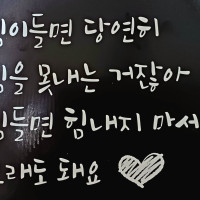 힘이들면 당연히
힘을 못내는 거잖아
힘들면 힘내지 마세
그래도 돼요